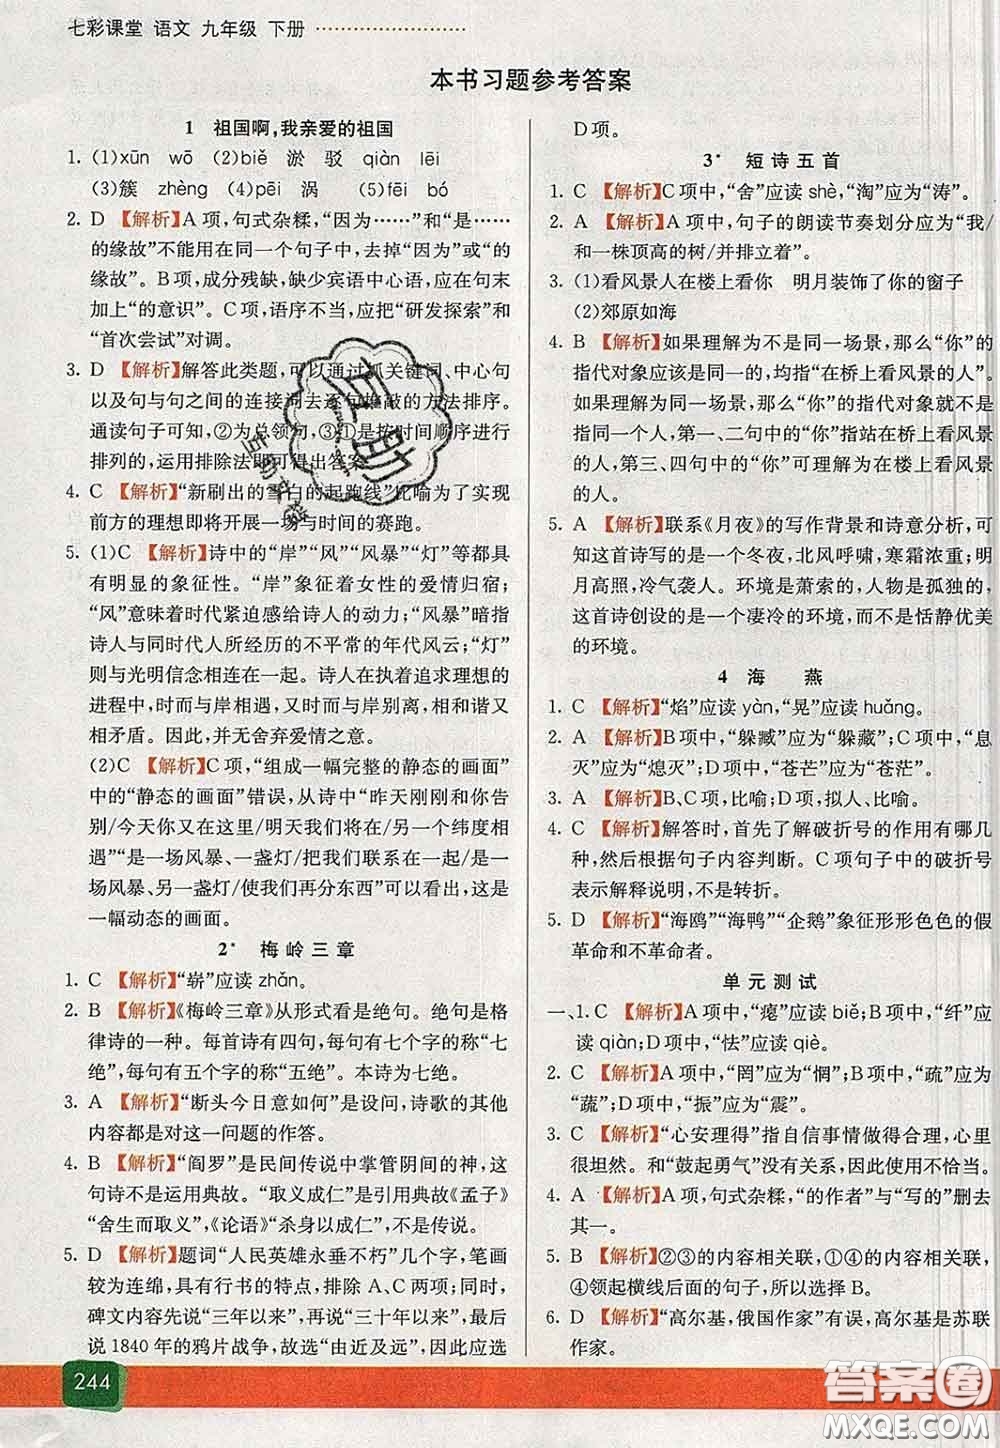 七彩课堂 语文 九年级 下册
本书习题参考答案
1 祖国啊,我亲爱的祖国
1. (1)xūn wō (2)biě 淤 驳 qiàn lěi
(3)簇 zhèng (4)pēi 涡 (5)fēi bó
2. D 【解析】A 项,句式杂糅,“因为……”和“是……
的缘故”不能用在同一个句子中,去掉“因为”或“的
缘故”。B 项,成分残缺,缺少宾语中心语,应在句末
加上“的意识”。C 项,语序不当,应把“研发探索”和
“首次尝试”对调。
3. D 【解析】解答此类题,可以通过抓关键词、中心句
以及句与句之间的连接词去逐句推敲的方法排序。
通读句子可知,②为总领句,③①是按先后顺序进行
排列的,运用排除法即可得出答案。
4. C 【解析】“新刷出的雪白的起跑线”比喻为了实现
前方的理想即将开展一场与时间的赛跑。
5. (1)C 【解析】诗中的“岸”“风”“风暴”“灯”等都具
有明显的象征性。“岸”象征着女性的爱情归宿;
“风”意味着时代紧迫感给诗人的动力;“风暴”暗指
诗人与同时代人所经历的不平常的年代风云;“灯”
则与光明信念相连在一起。诗人在执着追求理想的
进程中,时而与岸相遇,又时而与岸相别,两者互
相矛盾。并无舍弃爱情之意。
(2)C 【解析】C项,“组成一幅完整的静态的画面”
中“静态的画面”错误,从诗中“昨天刚刚和你告
别/今天你又在这里/明天我们将在另一个纬度相
遇”“是一场风暴、一盏灯/把我们联系在一起/是一
场风暴、另一盏灯/使我们再分东西”可以看出,这是
一幅动态的画面。
2* 梅岭三章
1. C 【解析】“崭”应读 zhǎn。
2. B 【解析】《梅岭三章》从形式看是绝句。绝句是格
律诗的一种。每首诗有四句,每句有七个字的叫“七
绝”,每句有五个字的叫“五绝”。本诗为七绝。
3. A 【解析】“断头今日意如何”是设问,诗歌的其他
内容都是对这一问题的作答。
4. B 【解析】“阎罗”是民间传说中掌管阴间的神,这
句诗不是运用典故。“取义成仁”是引用典故《孟子》
“舍生而取义”,《论语》“杀身以成仁”,不是传说。
5. D 【解析】题词“人民英雄永垂不朽”几个字,笔画
较为连绵,具有行书的特点,排除 A、C 两项;同时,
碑文内容先说“三年以来”,再说“三十年以来”,最后
说 1840 年的鸦片战争,故“由近及远”,因此应选
D 项。
3* 短诗五首
1. C 【解析】C项中,“舍”应读 shè,“淘”应为“涛”。
2. A 【解析】A项中,句子的朗读节奏划分应为“我/
和一株顶高的树/并排立着”。
3. (1)看风景人在楼上看你 明月装饰了你的窗子
(2)郊原如海
4. B 【解析】如果理解为不同一场景,那么“你”的
指代对象应该是同一的,均指“在桥上看风景的人”。
如果理解为同一场景,那么“你”的指代对象就不是
同一个人,第一、二句中的“你”指站在桥上看风景
的人,第三、四句中的“你”可理解为在楼上看风景
的人。
5. A 【解析】联系《月夜》的写作背景和诗意分析,可
知这首诗写的是一个冬夜,北风呼啸,寒霜浓重;明
月高照,冷气袭人。环境是萧索的,人物是孤独的,
这首诗创设的是一个凄冷的环境,而不是恬静优美
的环境。
4 海 燕
1. C 【解析】“焰”应读 yàn,“晃”应读 huǎng。
2. A 【解析】A项中,“躲臧”应为“躲藏”;C项中,“息
灭”应为“熄灭”;D项中,“苍芒”应为“苍茫”。
3. A 【解析】B、C 项,比喻;D项,拟人、比喻。
4. C 【解析】解答时,首先了解破折号的作用有哪几
种,然后根据句子内容判断。C 项句子中的破折号
表示解释说明,不是转折。
5. D 【解析】“海鸥”“海鸭”“企鹅”象征形形色色的假
革命和不革命者。
单元测试
一、1. C 【解析】A项中,“瘪”应读 biě;B项中,“纤”应
读 qiàn;D 项中,“怯”应读 qiè。
2. C 【解析】A项中,“罔”应为“惘”;B项中,“疏”应为
“蔬”;D项中,“振”应为“震”。
3. C 【解析】“心安理得”指自信事情做得合理,心里
很坦然。和“鼓起勇气”没有关系,因此使用不当。
4. A 【解析】A 项,句式杂糅,“的作者”与“写的”删去
其一。
5. B 【解析】②③的内容相关联,①④的内容相关联,
④领起横线后面的句子,所以选择 B。
6. D 【解析】“高尔基,俄国作家”有误,高尔基是苏联
作家。
244
答案圈
MXQE.COM